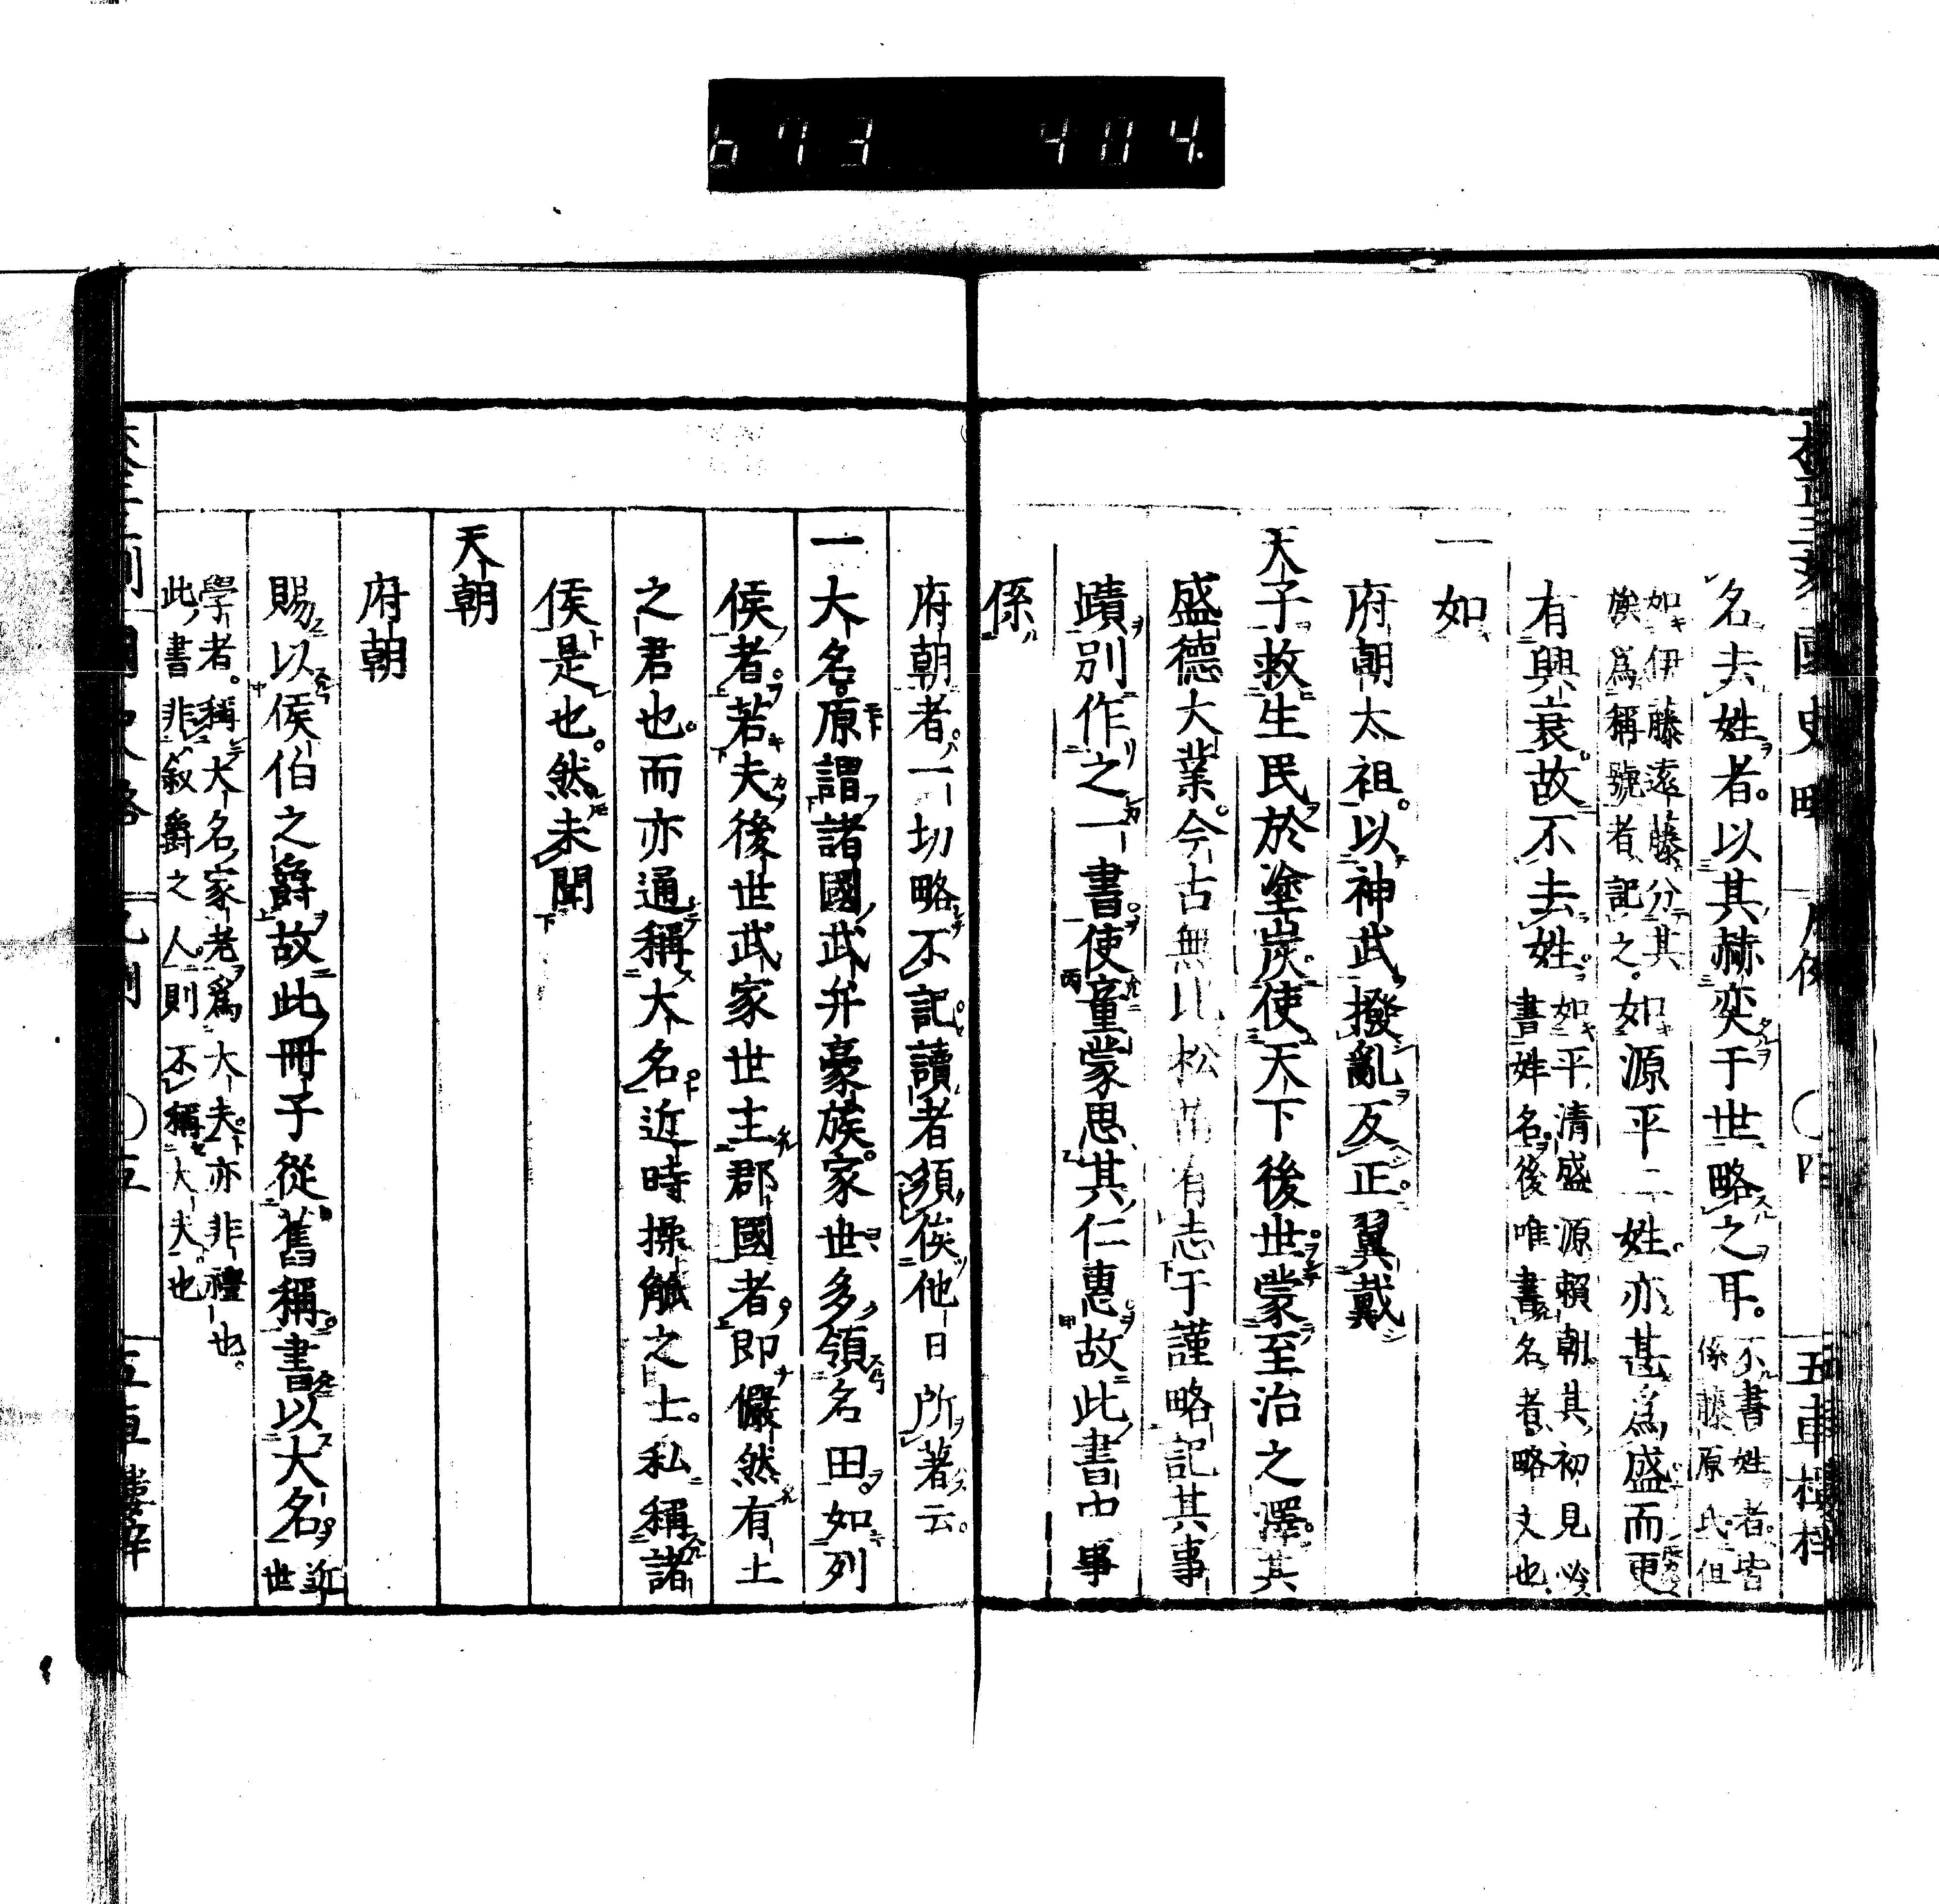 673 404.
名去姓者。以其赫奕于世略之耳。不書姓者。皆
係藤原氏。但
如伊藤遠藤分其
族爲稱號者記之。如源平二姓。亦甚爲盛而更
有興衰。故不去姓。如平清盛源賴朝。其初見必
書姓名。後唯書名者。略文也。
一如
府朝太祖。以神武撥亂反正。翼戴
天子救生民於塗炭。使天下後世蒙至治之澤。其
盛德大業。今古無比松苗有志于謹略記其事
蹟別作之一書。使童蒙思其仁惠。故此書中事
係
府朝者。一切略不記。讀者須俟他日所著云。
一大名。原謂諸國武弁豪族。家世多領名田。如列
侯者。若夫後世武家世主郡國者。即儼然有土
之君也。而亦通稱大名。近時操觚之士。私稱諸
侯是也。然未聞
天朝
府朝
賜以侯伯之爵。故此冊子從舊稱。書以大名。近
世
學者。稱大名家老爲大夫。亦非禮也。
此書非敘爵之人。則不稱大夫。也
國史略
凡例
〇五
五車樓梓